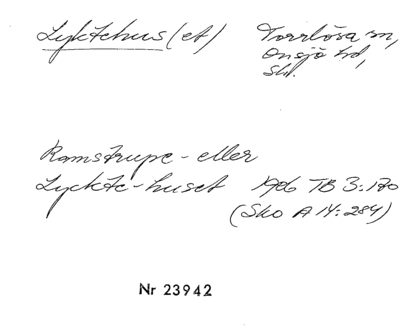 Lyktehus (et) Torrlösa sn,
Onsjö hd,
Sk.
Ramstrupe- eller
Lyckte-huset 1906 TB 3:170
(Sko A 14: 284)
Nr 23942